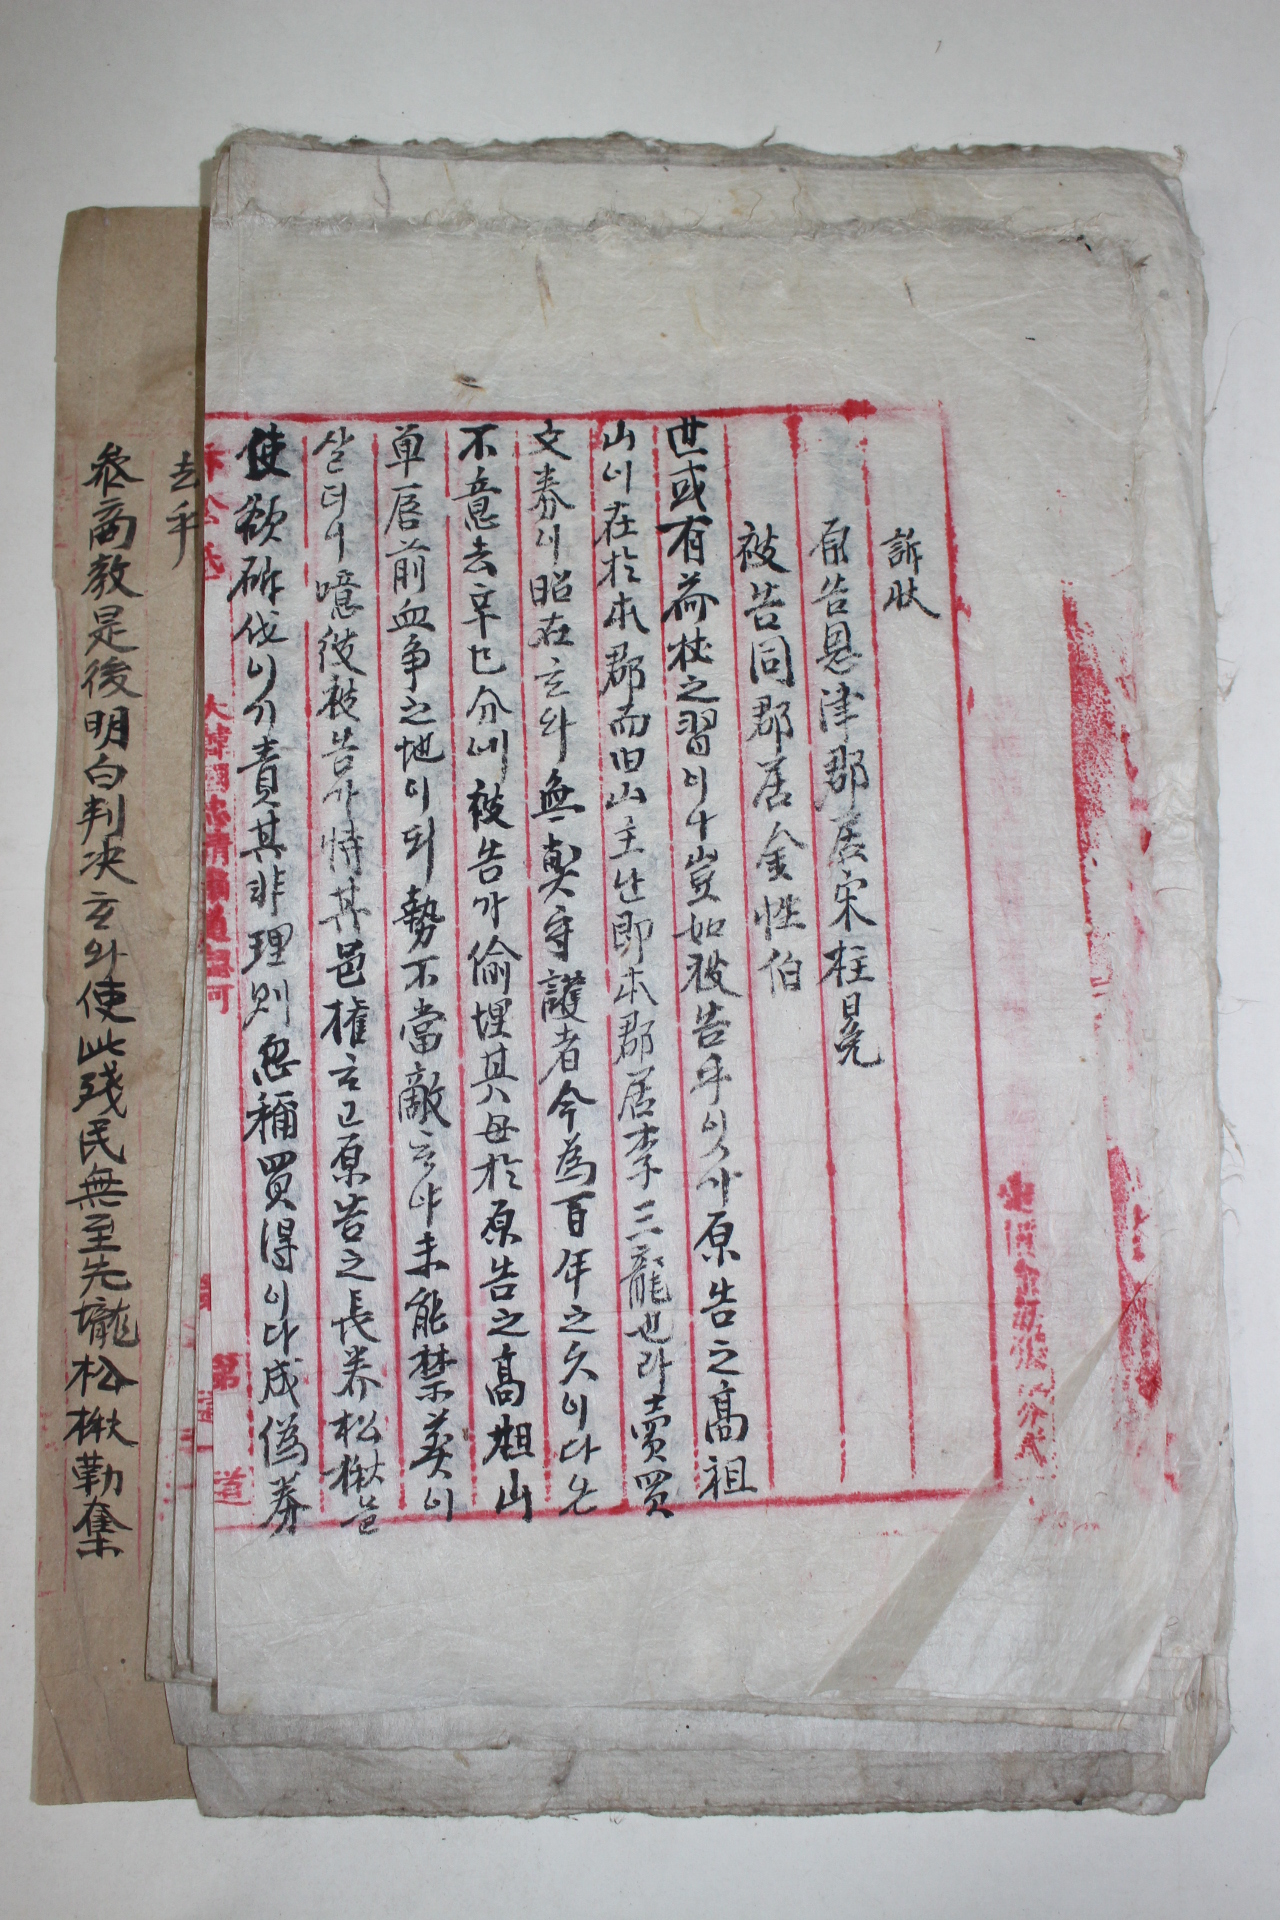 訴狀
原告恩津郡居宋柱冕
被告同郡居金性伯
世或有荷杖之習이나豈如被告乎잇가原告之高祖
山이在於本郡而旧山主난即本郡居李三龍也라賣買
文券이昭在하와無弊守護者今為百年之久이다니
不意去辛巳分에被告가偷埋其母於原告之高祖山
单唇前血争之地이되勢不當敵하야未能禁葬이
살더니噫彼被告가恃其邑權하고原告之長养松楸를
使欲斫伐이기責其非理則忽稱買得이다成偽券
大韓國忠清南道
第 道
去乎
叅商敎是後明白判决하와使此残民無至先壠松楸勒奪